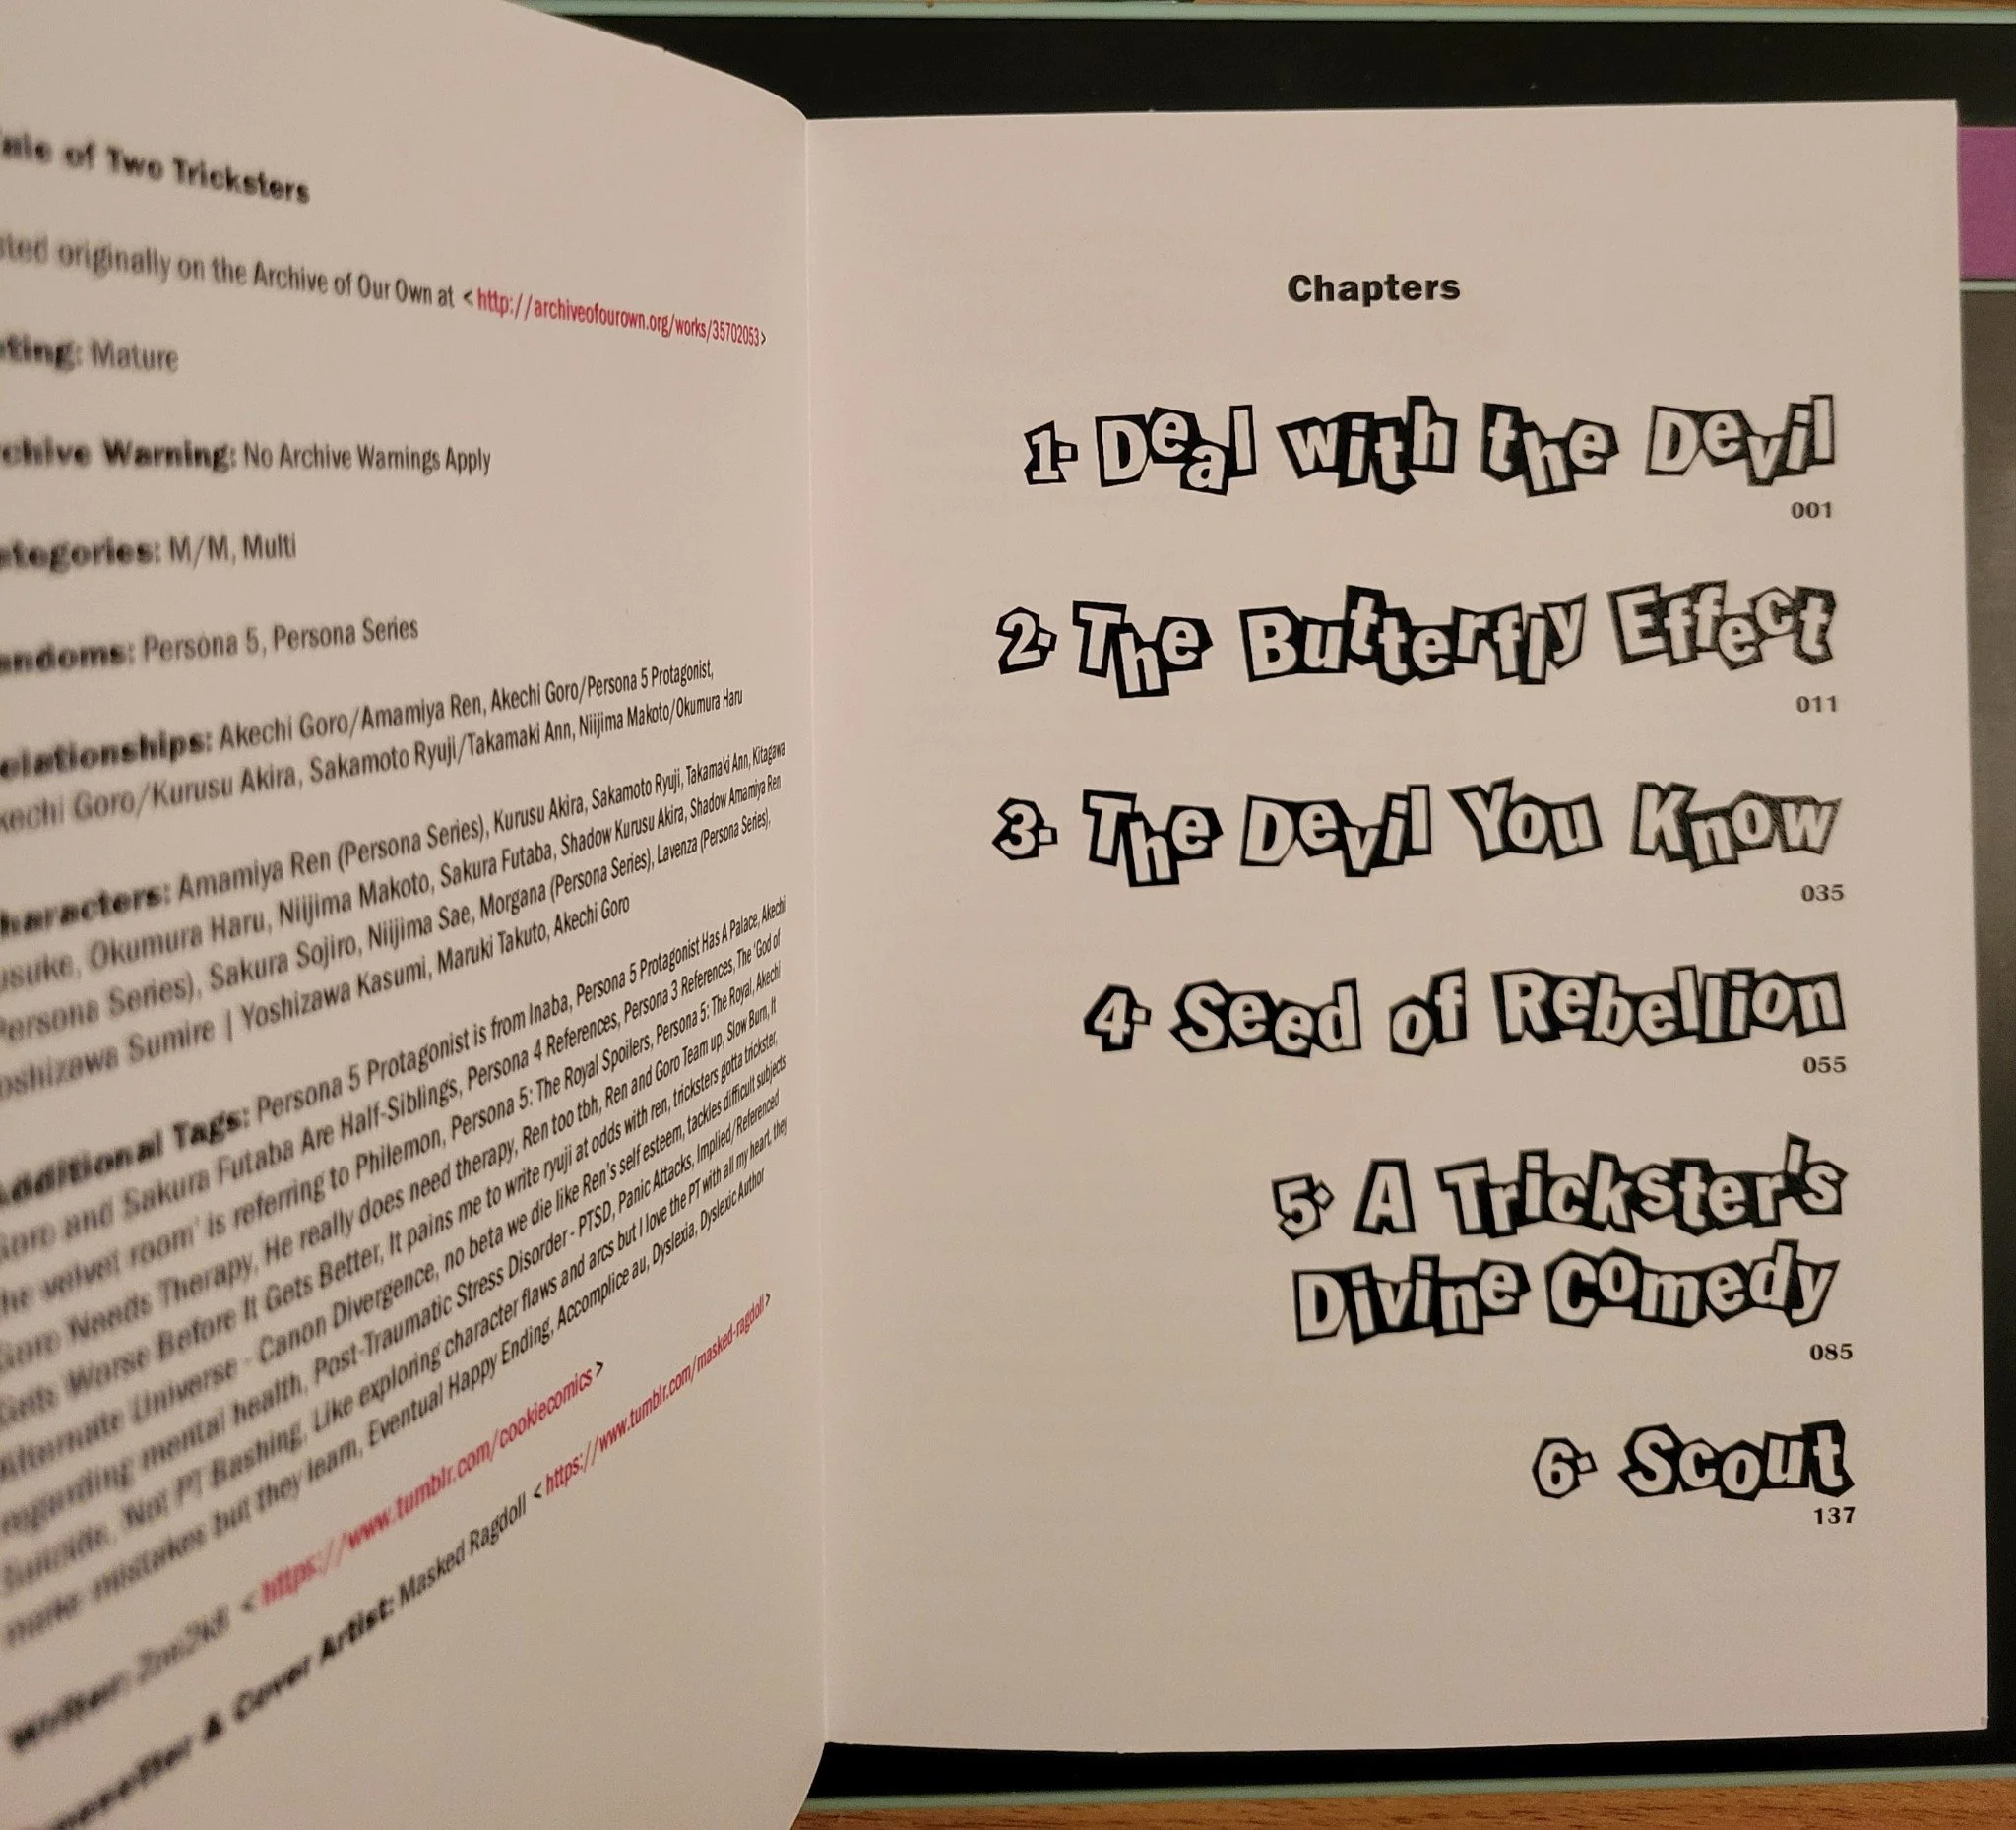 ale of Two Tricksters
sted originally on the Archive of Our Own at <http://archiveofourown.org/works/35702053>
ting: Mature
chive Warning: No Archive Warnings Apply
ategories: M/M, Multi
andoms: Persona 5, Persona Series
elationships: Akechi Goro/Amamiya Ren, Akechi Goro/Persona 5 Protagonist,
kechi Goro/Kurusu Akira, Sakamoto Ryuji/Takamaki Ann, Niijima Makoto/Okumura Haru
haracters: Amamiya Ren (Persona Series), Kurusu Akira, Sakamoto Ryuji, Takamaki Ann, Kitagawa
usuke, Okumura Haru, Niijima Makoto, Sakura Futaba, Shadow Kurusu Akira, Shadow Amamiya Ren
Persona Series), Sakura Sojiro, Niijima Sae, Morgana (Persona Series), Lavenza (Persona Series),
oshizawa Sumire | Yoshizawa Kasumi, Maruki Takuto, Akechi Goro
dditional Tags: Persona 5 Protagonist is from Inaba, Persona 5 Protagonist Has A Palace, Akechi
Goro and Sakura Futaba Are Half-Siblings, Persona 4 References, Persona 3 References, The 'God of
the velvet room' is referring to Philemon, Persona 5: The Royal Spoilers, Persona 5: The Royal, Akechi
Goro Needs Therapy, He really does need therapy, Ren too tbh, Ren and Goro Team up, Slow Burn, It
Gets Worse Before It Gets Better, It pains me to write ryuji at odds with ren, tricksters gotta trickster,
Alternate Universe - Canon Divergence, no beta we die like Ren's self esteem, tackles difficult subjects
regarding mental health, Post-Traumatic Stress Disorder - PTSD, Panic Attacks, Implied/Referenced
Suicide, Not PT Bashing, Like exploring character flaws and arcs but I love the PT with all my heart, they
make mistakes but they learn, Eventual Happy Ending, Accomplice au, Dyslexia, Dyslexic Author
Writer: <https://www.tumblr.com/cookiecomics>
& Cover Artist: Masked Ragdoll <https://www.tumblr.com/masked-ragdoll>
Chapters
1- Deal with the Devil
001
2- The Butterfly Effect
011
3- The Devil You Know
035
4- Seed of Rebellion
055
5- A Trickster's
Divine Comedy
085
6- Scout
137